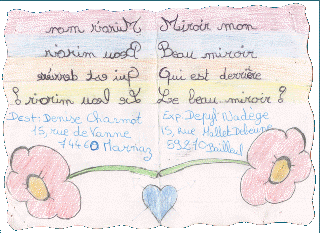 Miroir mon
Beau miroir
Qui est derrière
Le beau miroir ?
Miroir mon
Beau miroir
Qui est derrière
Le beau miroir ?
Dest: Denise Charmot
15, rue de Vanne
74460 Marnaz
Exp: Depyl Nadège
15, Rue
59270 Bailleul